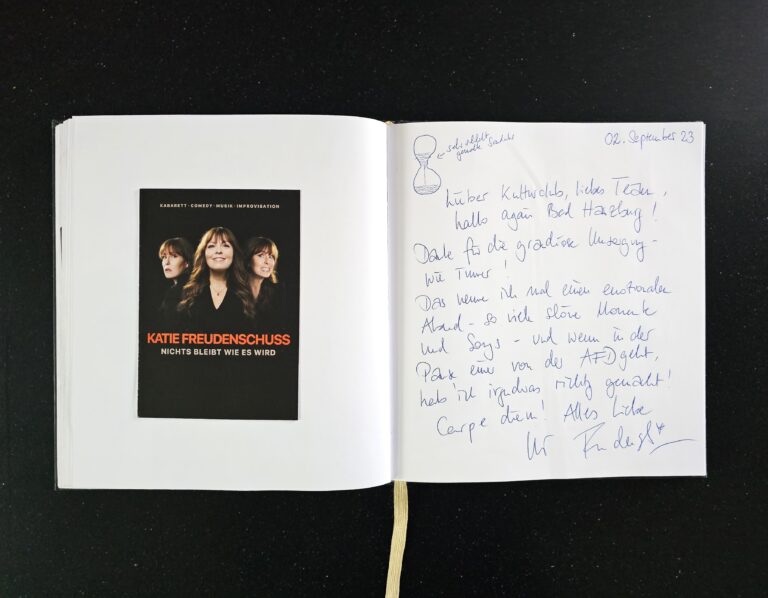 KABARETT · COMEDY · MUSIK · IMPROVISATION
KATIE FREUDENSCHUSS
NICHTS BLEIBT WIE ES WIRD
02. September 23
Lieber Kulturclub, liebes Team,
hallo again Bad Harzburg!
Danke für die grandiose Umsorgung –
wie immer!
Das nenne ich mal einen emotionalen
Abend – so viele schöne Momente
und Songs – und wenn in der
Pause einer von der AFD geht,
hab' ich irgendwas richtig gemacht!
Carpe diem! Alles Liebe